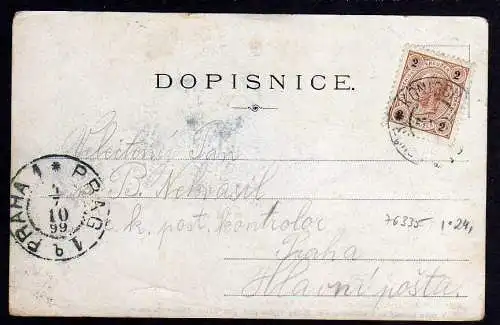 DOPISNICE.
2 2
2 2
Velectěný Pan
B. Nekvasil
c. k. post. kontrolor
Praha
Hlavní pošta.
76335
PRAHA 1 * PRAG 1
10
99